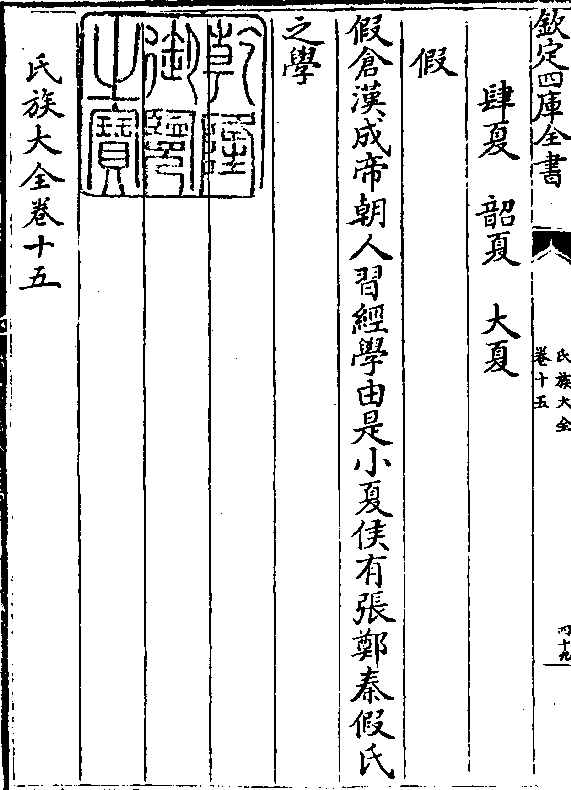 欽定四庫全書
氏族大全
卷十五
四十九
肆夏 韶夏 大夏
假
假倉漢成帝朝人習經學由是小夏侯有張鄭秦假氏
之學
乾隆御覽之寶
氏族大全卷十五